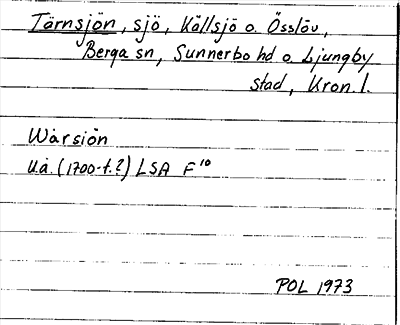 Tärnsjön, sjö, Källsjö o. Össlöv,
Berga sn, Sunnerbo hd o. Ljungby
stad, Kron. l.
Wårsiön
U.å. (1700-t.?) LSA F¹⁰
POL 1973